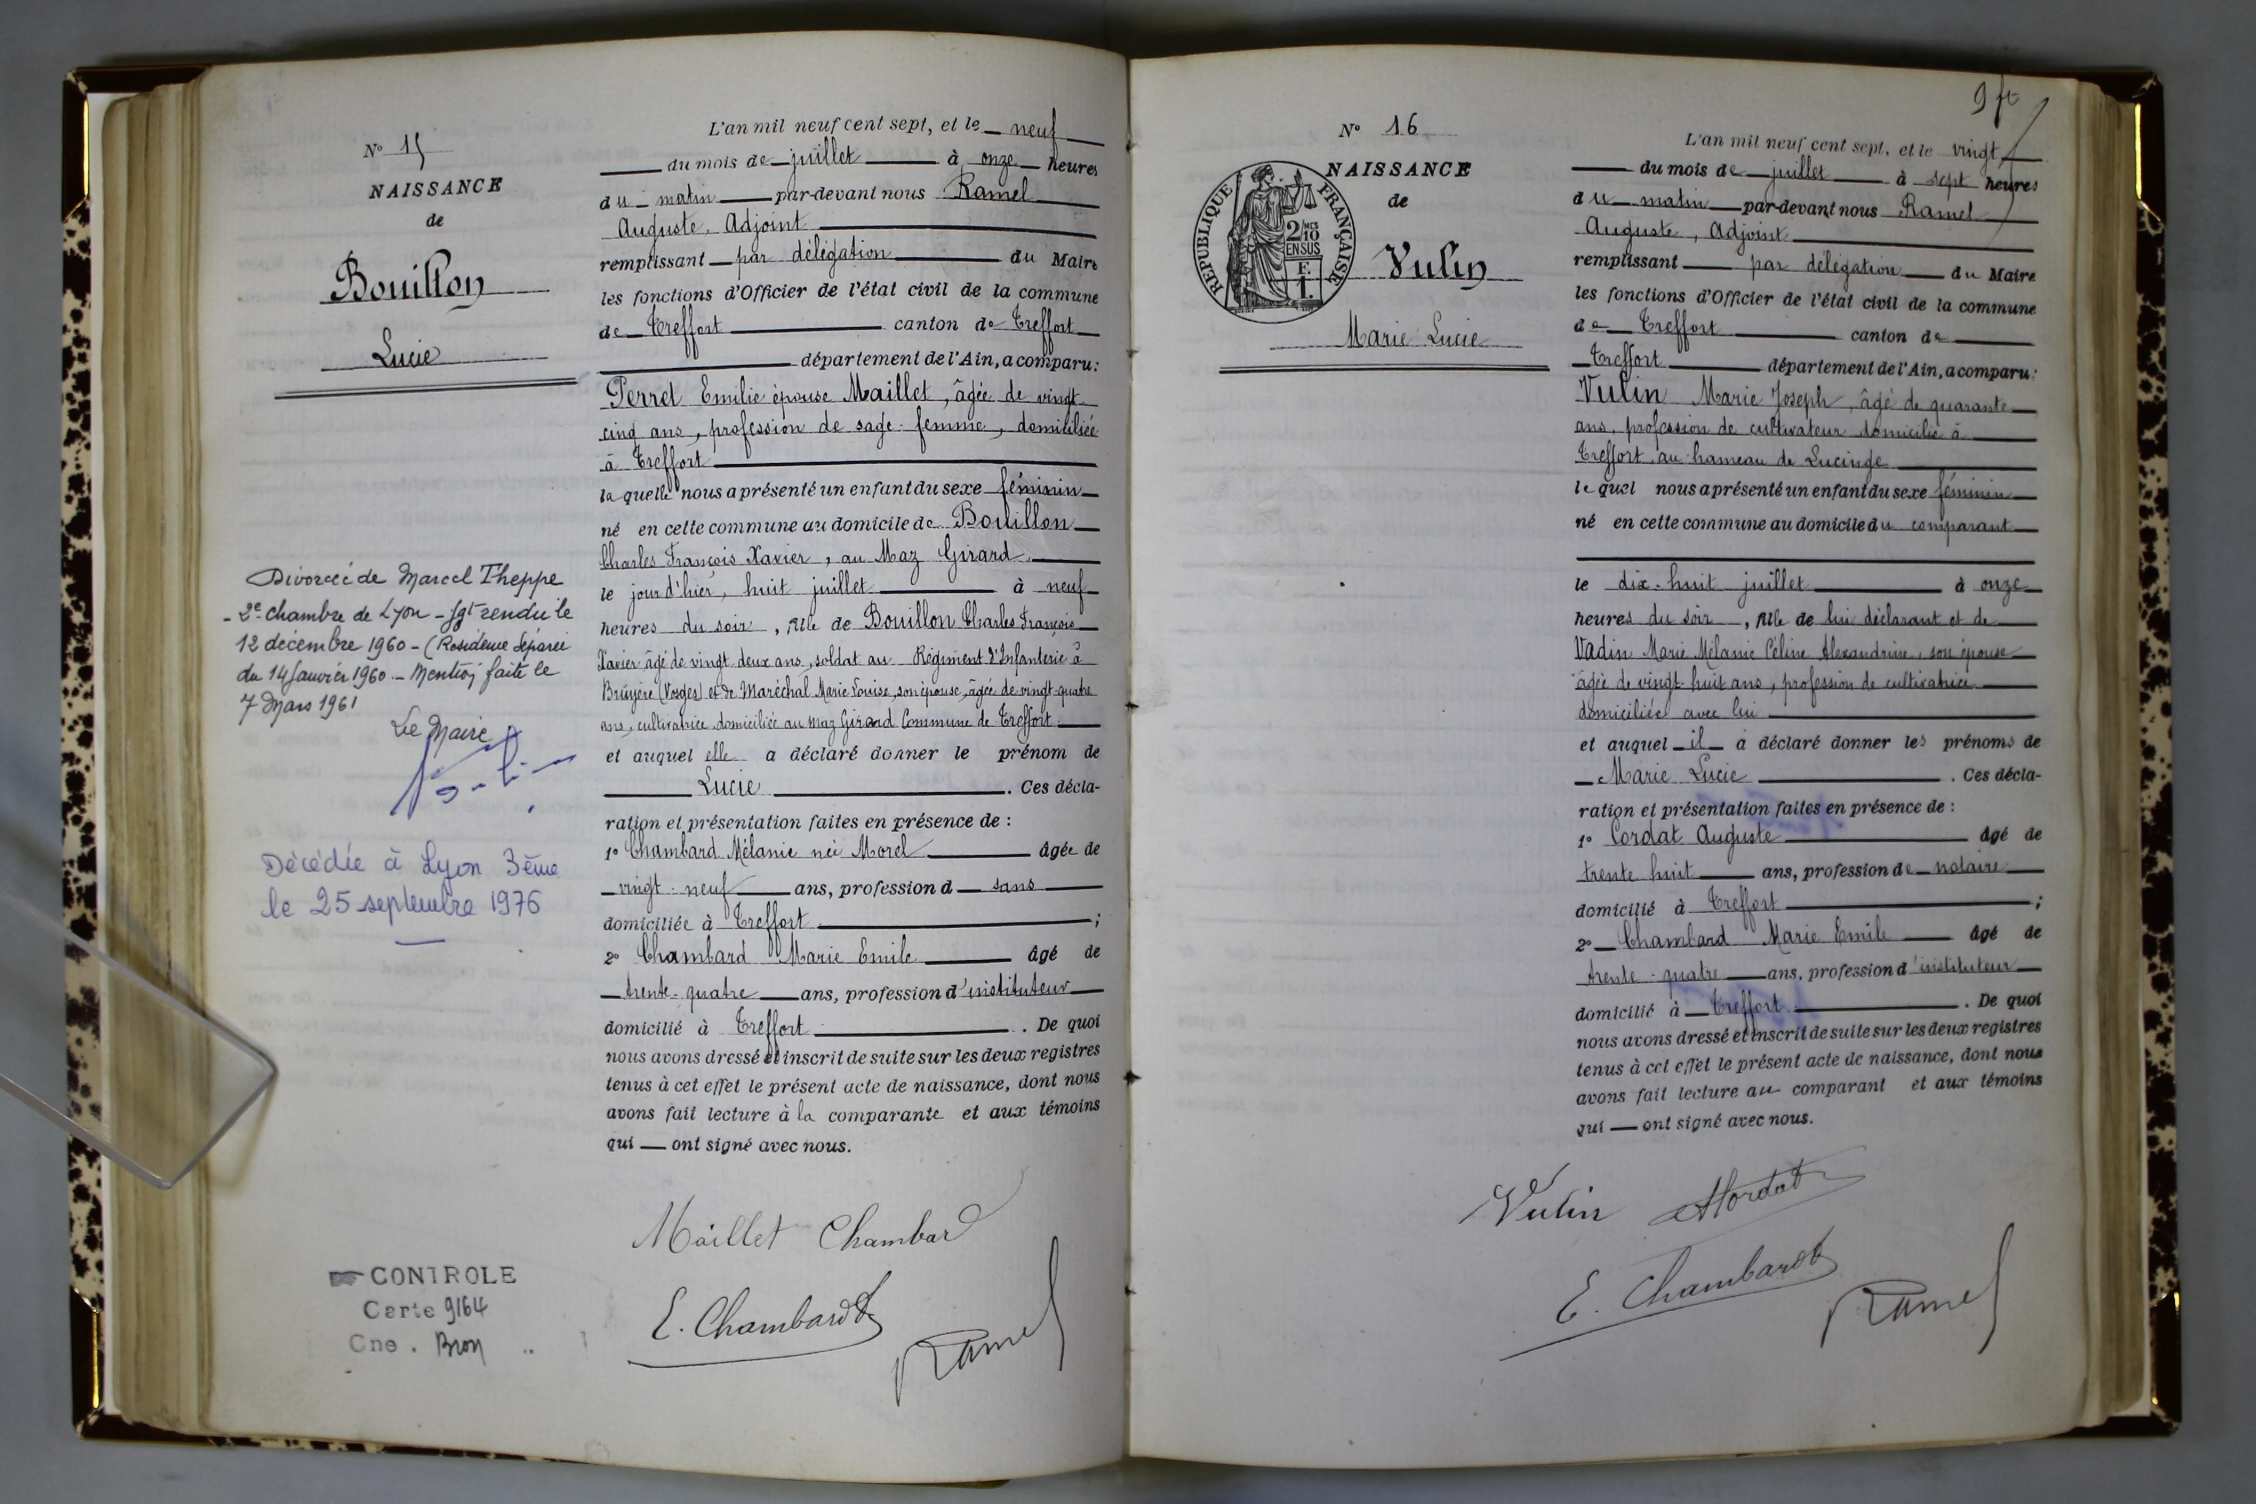 N° 15
NAISSANCE
de
Bouillon
Lucie
Divorcée de Marcel Theppe
- 2e chambre de Lyon - Jgt rendu le
12 décembre 1960 - (Résidence Séparée
du 14 Janvier 1960 - Mention faite le
7 Mars 1961
Le Maire
Décédée à Lyon 3ème
le 25 septembre 1976
CONTROLE
Carte 9164
Cne . Bron
L'an mil neuf cent sept, et le neuf
du mois de juillet à onze heures
du matin par-devant nous Ramel
Auguste, Adjoint
remplissant par délégation du Maire
les fonctions d'Officier de l'état civil de la commune
de Treffort canton de Treffort
département de l'Ain, a comparu:
Perret Emilie épouse Maillet, âgée de vingt
cinq ans, profession de sage-femme, domiciliée
à Treffort
laquelle nous a présenté un enfant du sexe féminin
né en cette commune au domicile de Bouillon
Charles François Xavier, au Maz Girard
le jour d'hier, huit juillet à neuf
heures du soir, fille de Bouillon Charles François
Xavier âgé de vingt deux ans, soldat au Régiment d'Infanterie à
Bruyère (Vosges) et de Maréchal Marie Louise, son épouse, âgée de vingt-quatre
ans, cultivatrice domiciliée au Maz Girard Commune de Treffort
et auquel elle a déclaré donner le prénom de
Lucie . Ces décla-
ration et présentation faites en présence de :
1° Chambard Mélanie née Morel âgée de
vingt-neuf ans, profession d sans
domiciliée à Treffort ;
2° Chambard Marie Emile âgé de
trente-quatre ans, profession d'instituteur
domicilié à Treffort . De quoi
nous avons dressé et inscrit de suite sur les deux registres
tenus à cet effet le présent acte de naissance, dont nous
avons fait lecture à la comparante et aux témoins
qui ont signé avec nous.
Maillet Chambard
E. Chambard
Ramel
N° 16
NAISSANCE
de
RÉPUBLIQUE FRANÇAISE
2/10 EN SUS
F.
1.
Vulin
Marie Lucie
L'an mil neuf cent sept, et le vingt
du mois de juillet à sept heures
du matin par-devant nous Ramel
Auguste, Adjoint
remplissant par délégation du Maire
les fonctions d'Officier de l'état civil de la commune
de Treffort canton de
Treffort département de l'Ain, a comparu:
Vulin Marie Joseph, âgé de quarante
ans, profession de cultivateur domicilié à
Treffort au hameau de Lucinge
lequel nous a présenté un enfant du sexe féminin
né en cette commune au domicile du comparant
le dix-huit juillet à onze
heures du soir, fille de lui déclarant et de
Vadin Marie Mélanie Céline Alexandrine, son épouse
âgée de vingt-huit ans, profession de cultivatrice
domiciliée avec lui
et auquel il a déclaré donner les prénoms de
Marie Lucie . Ces décla-
ration et présentation faites en présence de :
1° Cordat Auguste âgé de
trente huit ans, profession de notaire
domicilié à Treffort ;
2° Chambard Marie Emile âgé de
trente-quatre ans, profession d'instituteur
domicilié à Treffort . De quoi
nous avons dressé et inscrit de suite sur les deux registres
tenus à cet effet le présent acte de naissance, dont nous
avons fait lecture au comparant et aux témoins
qui ont signé avec nous.
Vulin
E. Chambard
Ramel